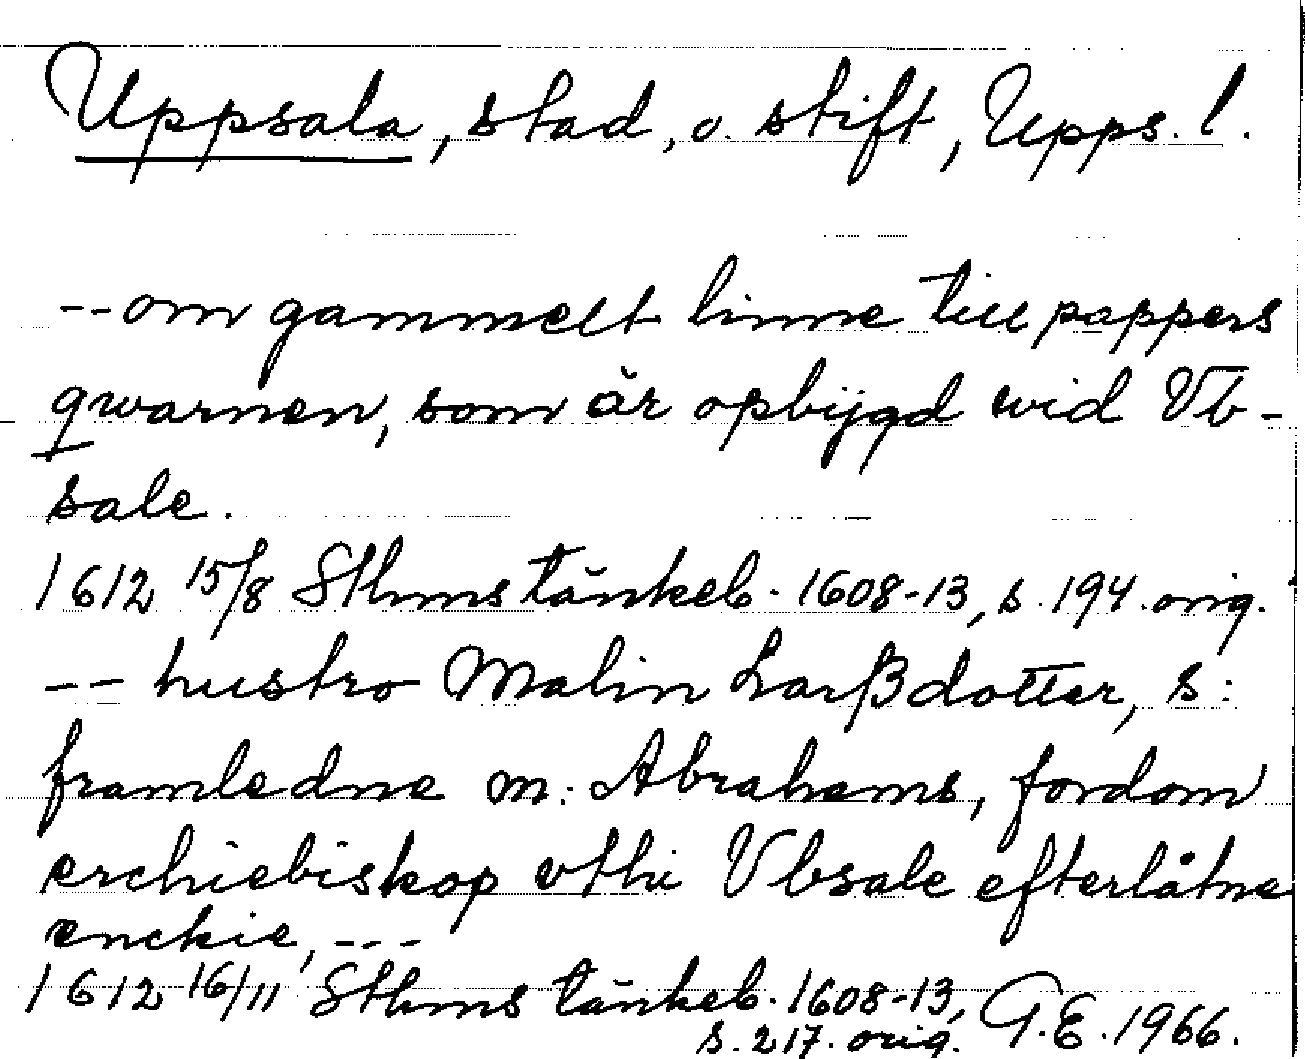 Uppsala, stad, o. stift, Upps. l.
-- om gammelt linne till pappers
qwarnen, som är opbÿgd wid Vb-
sale.
1612 15/8 Sthms tänkeb. 1608-13, s. 194. orig.
-- hustro Malin Larßdotter, s:
framledne m: Abrahams, fordom
erchiebiskop vthi Vbsale efterlåtne
enckie, ---
1612 16/11 Sthms tänkeb. 1608-13,
s. 217. orig. G.E. 1966.